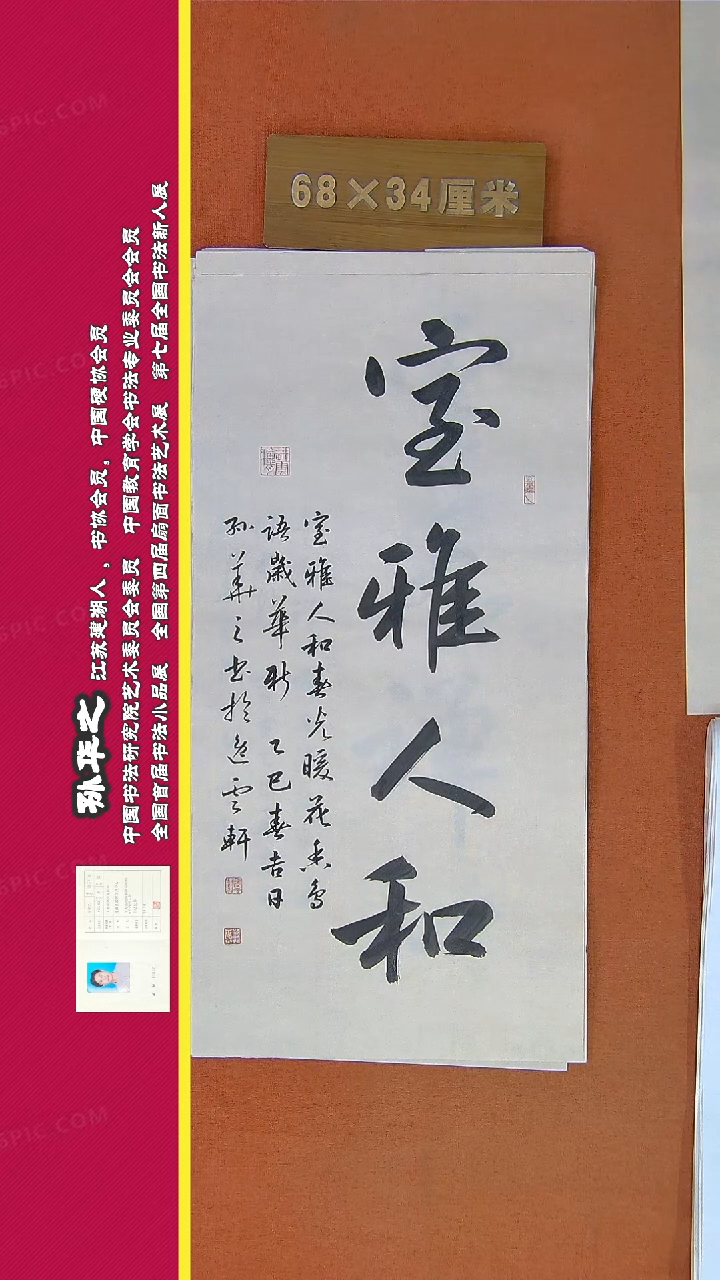 68×34厘米
室雅人和
室雅人和春光暖花香鸟
语岁华新 乙巳春吉日
孙华之书于逸云轩
孙华之 江苏建湖人,书协会员。中国硬协会员
中国书法研究院艺术委员会委员 中国教育学会书法专业委员会会员
全国首届书法小品展 全国第四届扇面书法艺术展 第七届全国书法新人展